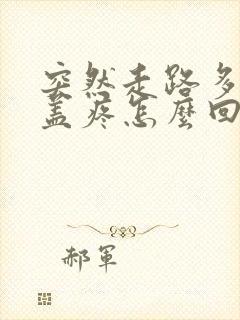 突然走路多
盖疼怎麼回
郝軍